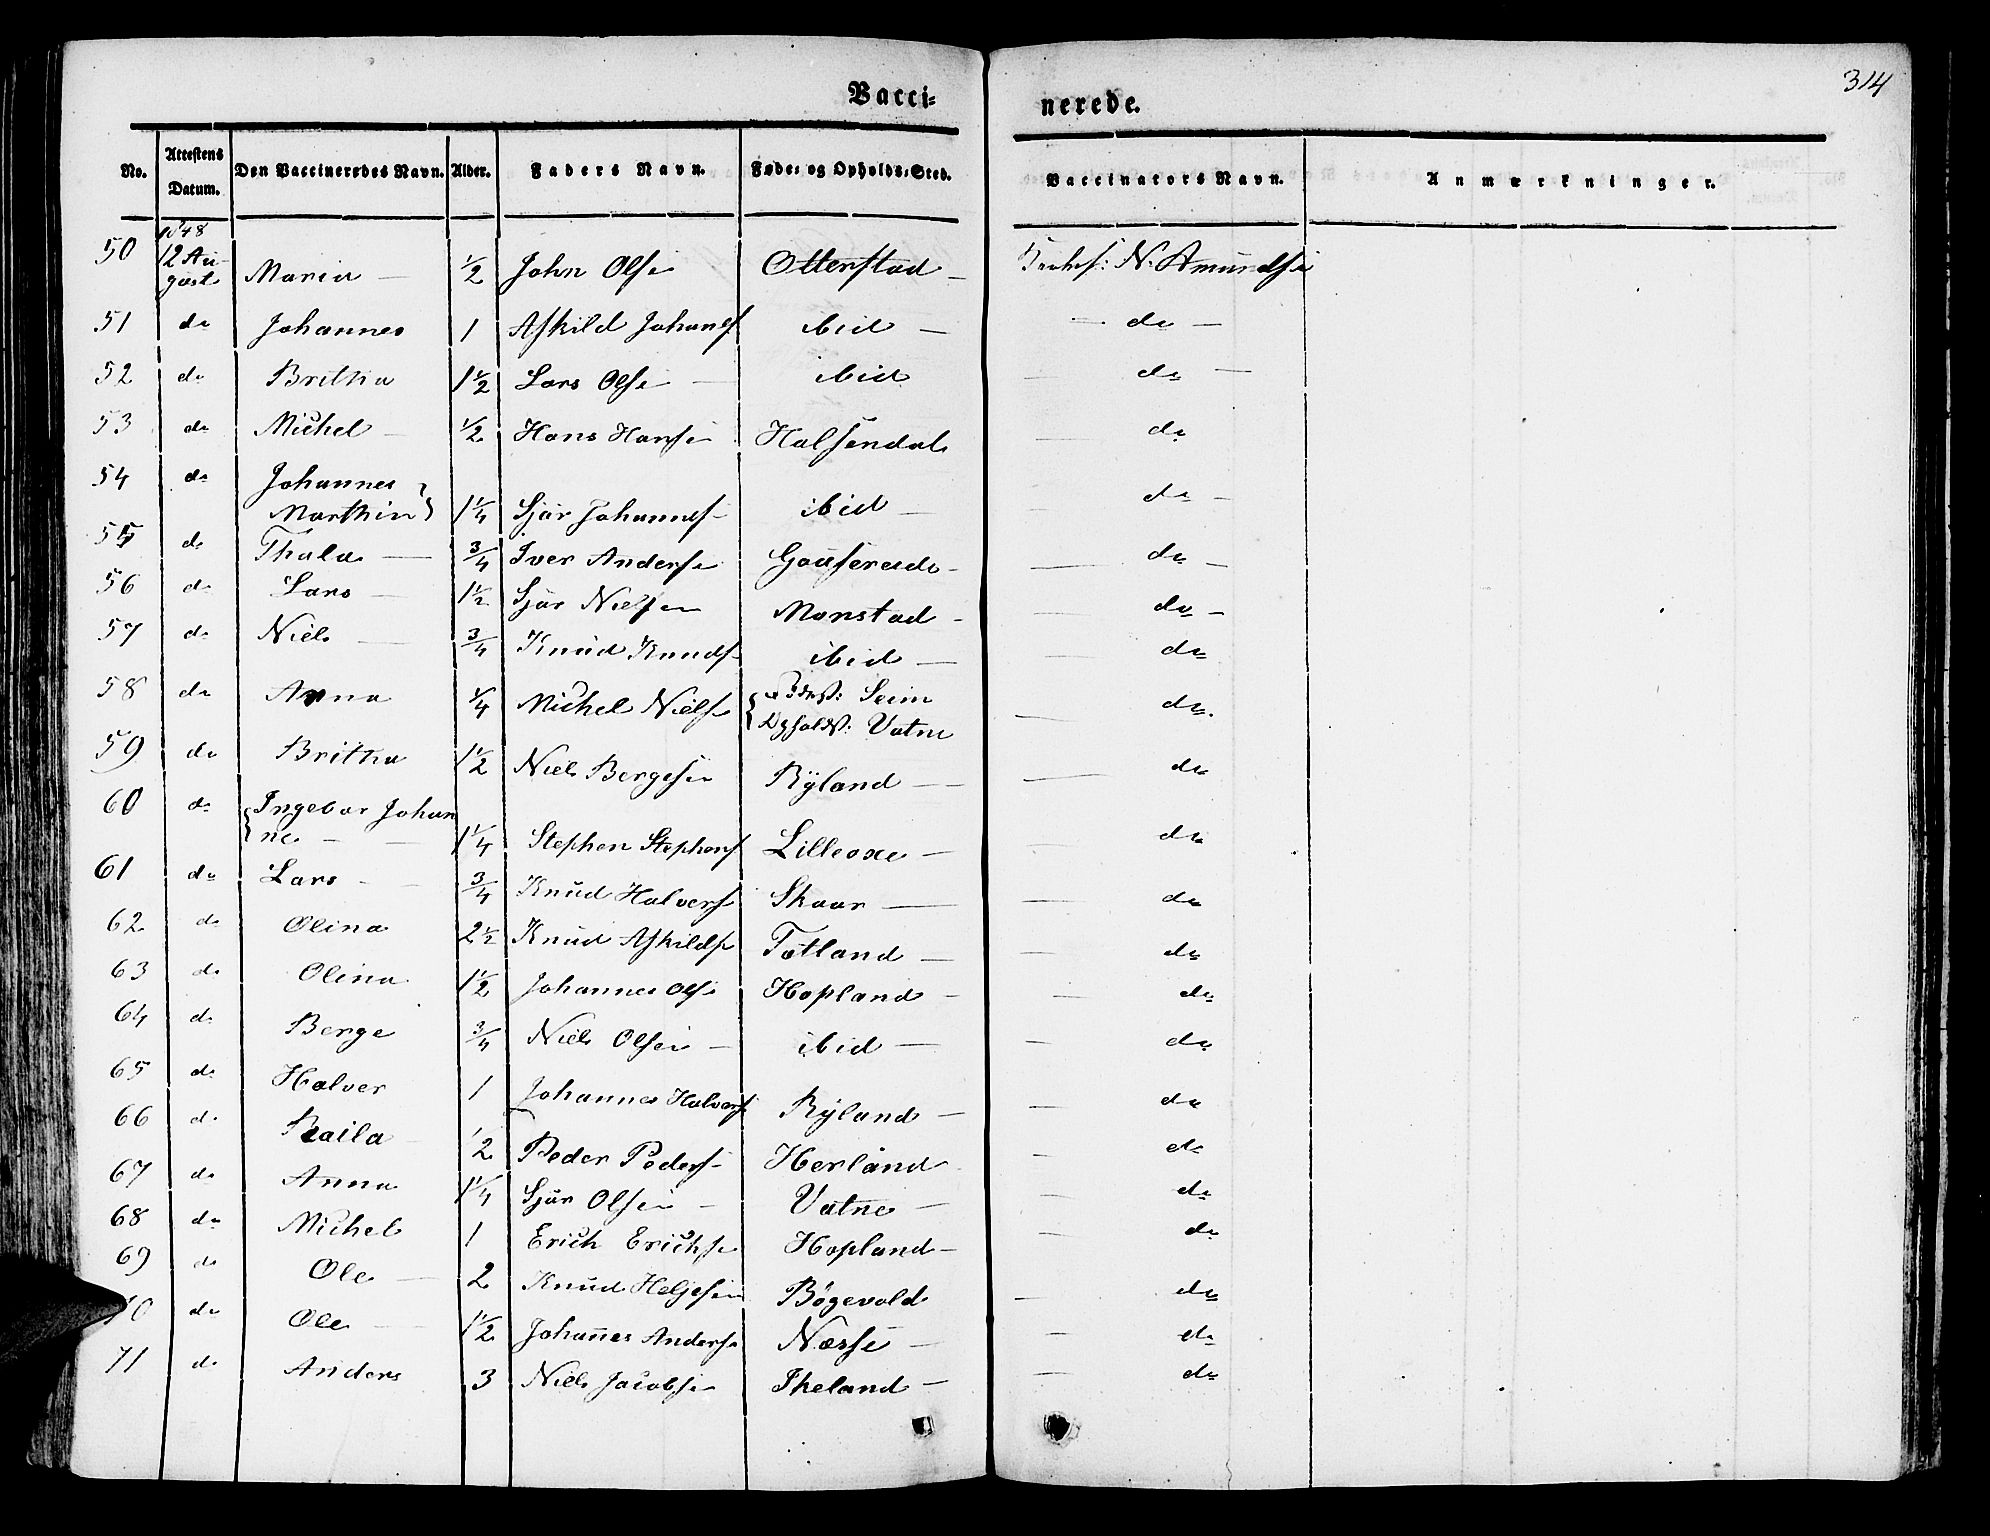 314
Vacci- nerede.
No. Attestens Datum. Den Vaccineredes Navn. Alder. Faders Navn. Føde- og Opholds-Sted. Vaccinators Navn. Anmærkninger.
1848
50 12 Au-
gust Maria — 1/2 John Olse Otterstad — N. Amundse
51 do Johannes 1 Askild Johans ibid — — do —
52 do Britha 1 1/2 Lars Olse — ibid — do —
53 do Michel — 1/2 Hans Hanse Halsendal — do
54 do Johannes
Marthin } 1 1/4 Sjur Johannes- ibid — — do —
55 do Thala — 3/4 Iver Anderse Gouserude — — do —
56 do Lars — 1 1/2 Sjur Nielsen Monstad — — do —
57 do Niels — 3/4 Knud Knuds- ibid — — do
58 do Anna 1/4 Michel Niels { Fdest: Seim
Opholdst: Vatne — do.
59 do Britha 1 1/2 Niels Bergesen Rÿland — — do
60 do { Ingebor Johan
ne — — 1 1/4 Stephen Stephens Lilleoxe — — do
61 do Lars — 3/4 Knud Halvers Skaar — — do
62 do Olina 2 1/2 Knud Askilds Totland — — do
63 do Olina 1 1/2 Johannes Ols Hopland — — do
64 do Berge 3/4 Niels Olsen — ibid — — do
65 do Halver 1 Johannes Halvers Rÿland — — do
66 do Raila — 1/2 Peder Peders- Herland — — do
67 do Anna 1 1/4 Sjur Olsen — Vatne — — do
68 do Michel 1 Erich Erichse Hopland — do
69 do Ole — 2 Knud Heljesen Bøgevold — do
70 do Ole — 1 1/2 Johannes Anderse Næsse — — do
71 do Anders 3 Niels Jacobse Ikeland — — do